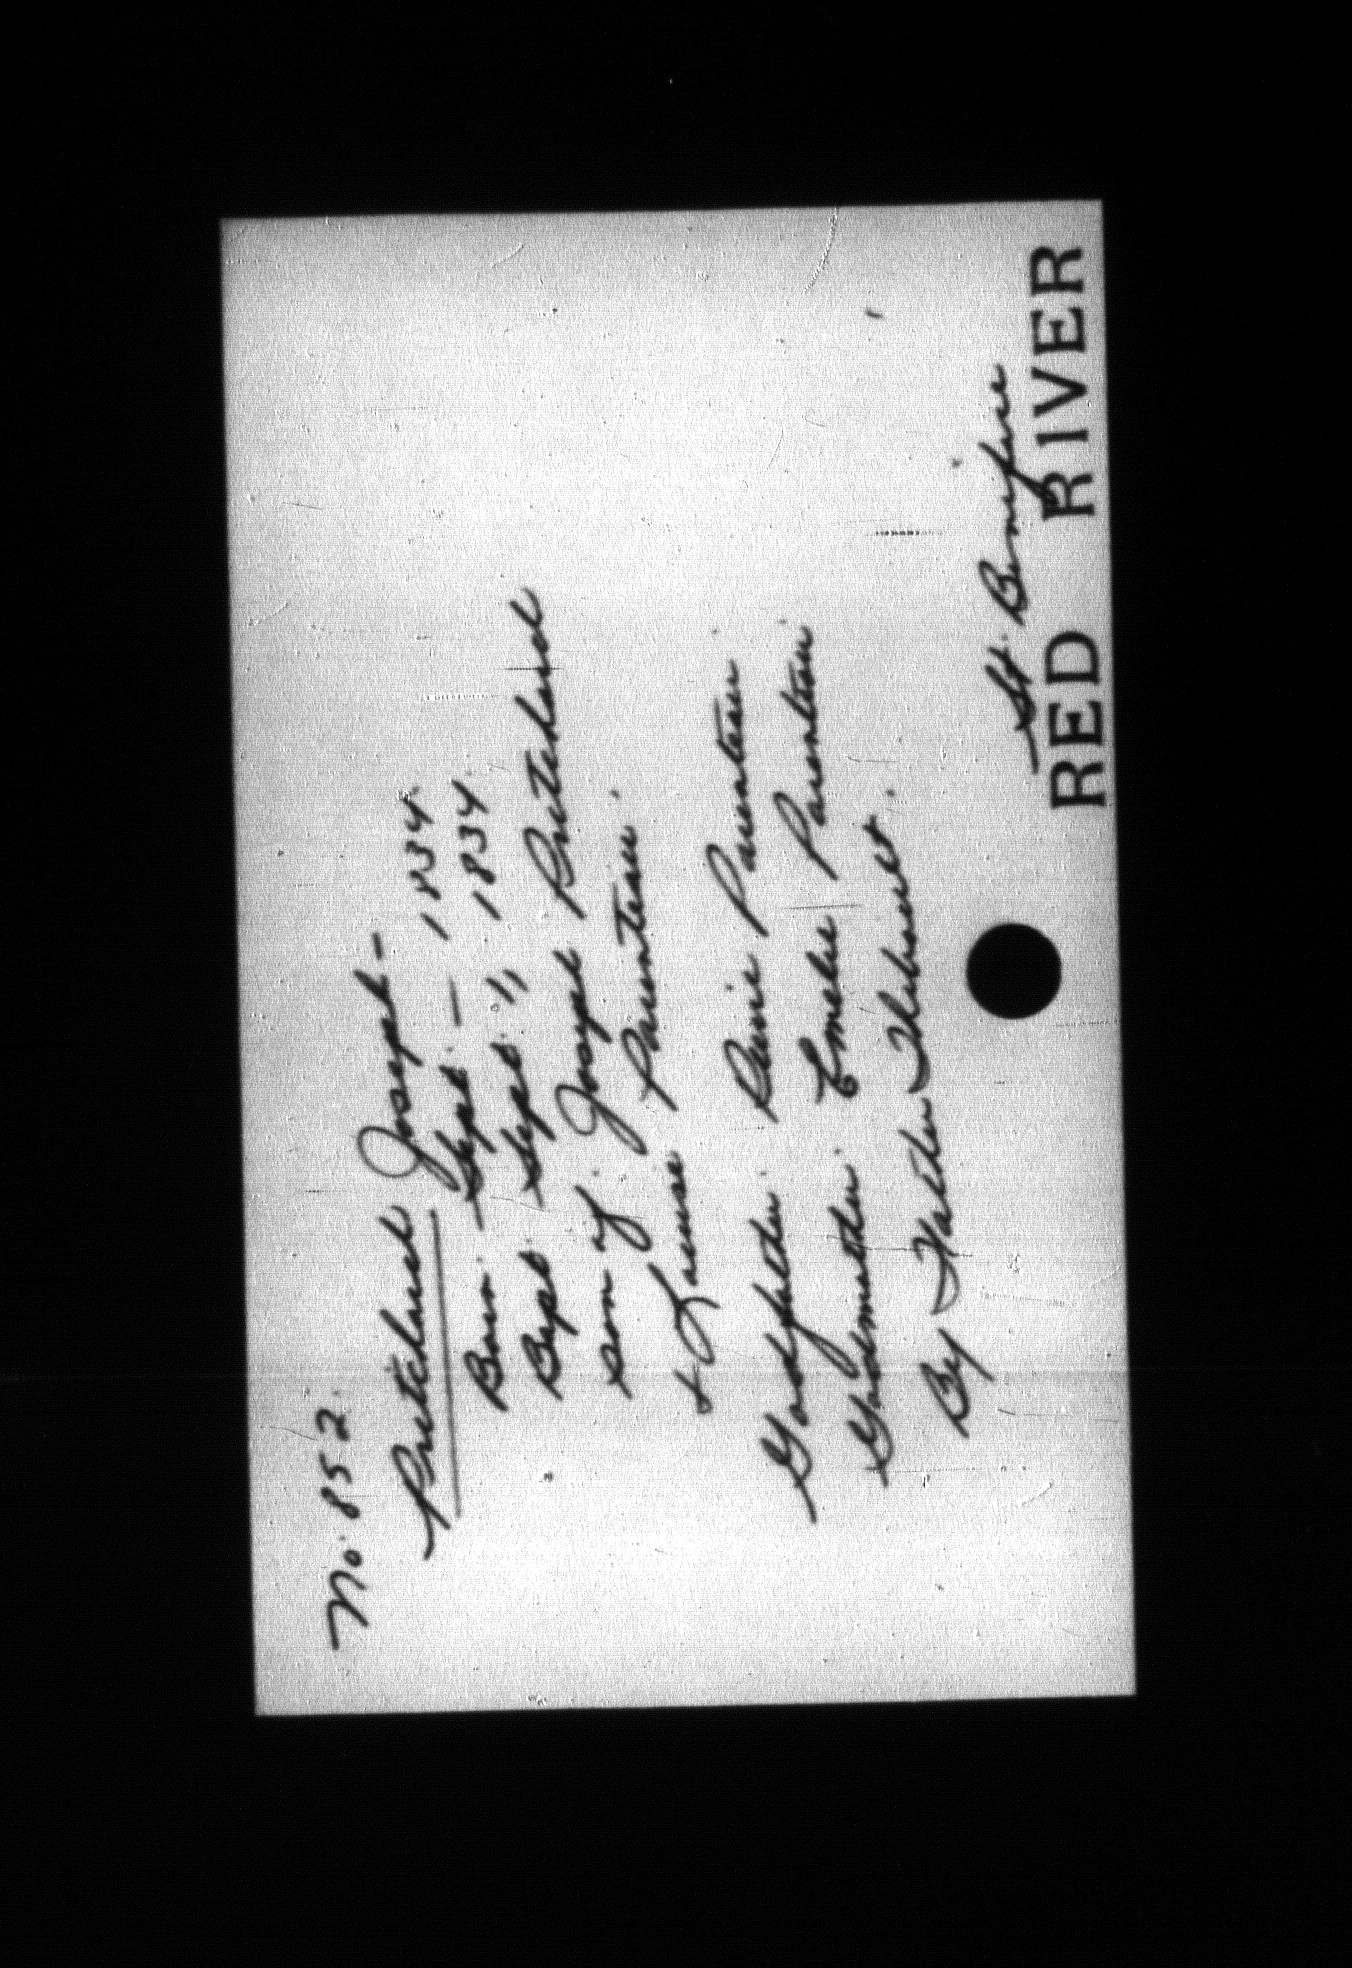 No. 852.
Pritchard Joseph -
Born. Sept. - 1834.
Bapt. Sept. 11 1834.
son of. Joseph Pritchard
& Louise Parenteau.
Godfather Parenteau
Godmother Emelie Parenteau
By Father Thibault.
St. Boniface
RED RIVER